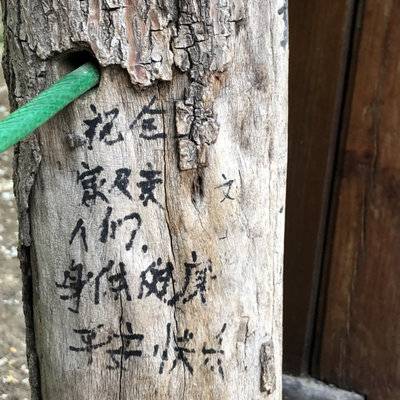 祝全
家及亲
人们,
身体健康
平安快乐
文